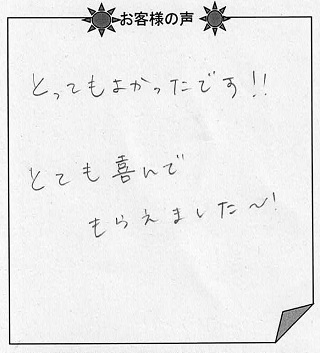 お客様の声
とってもよかったです!!
とても喜んで
もらえました〜!